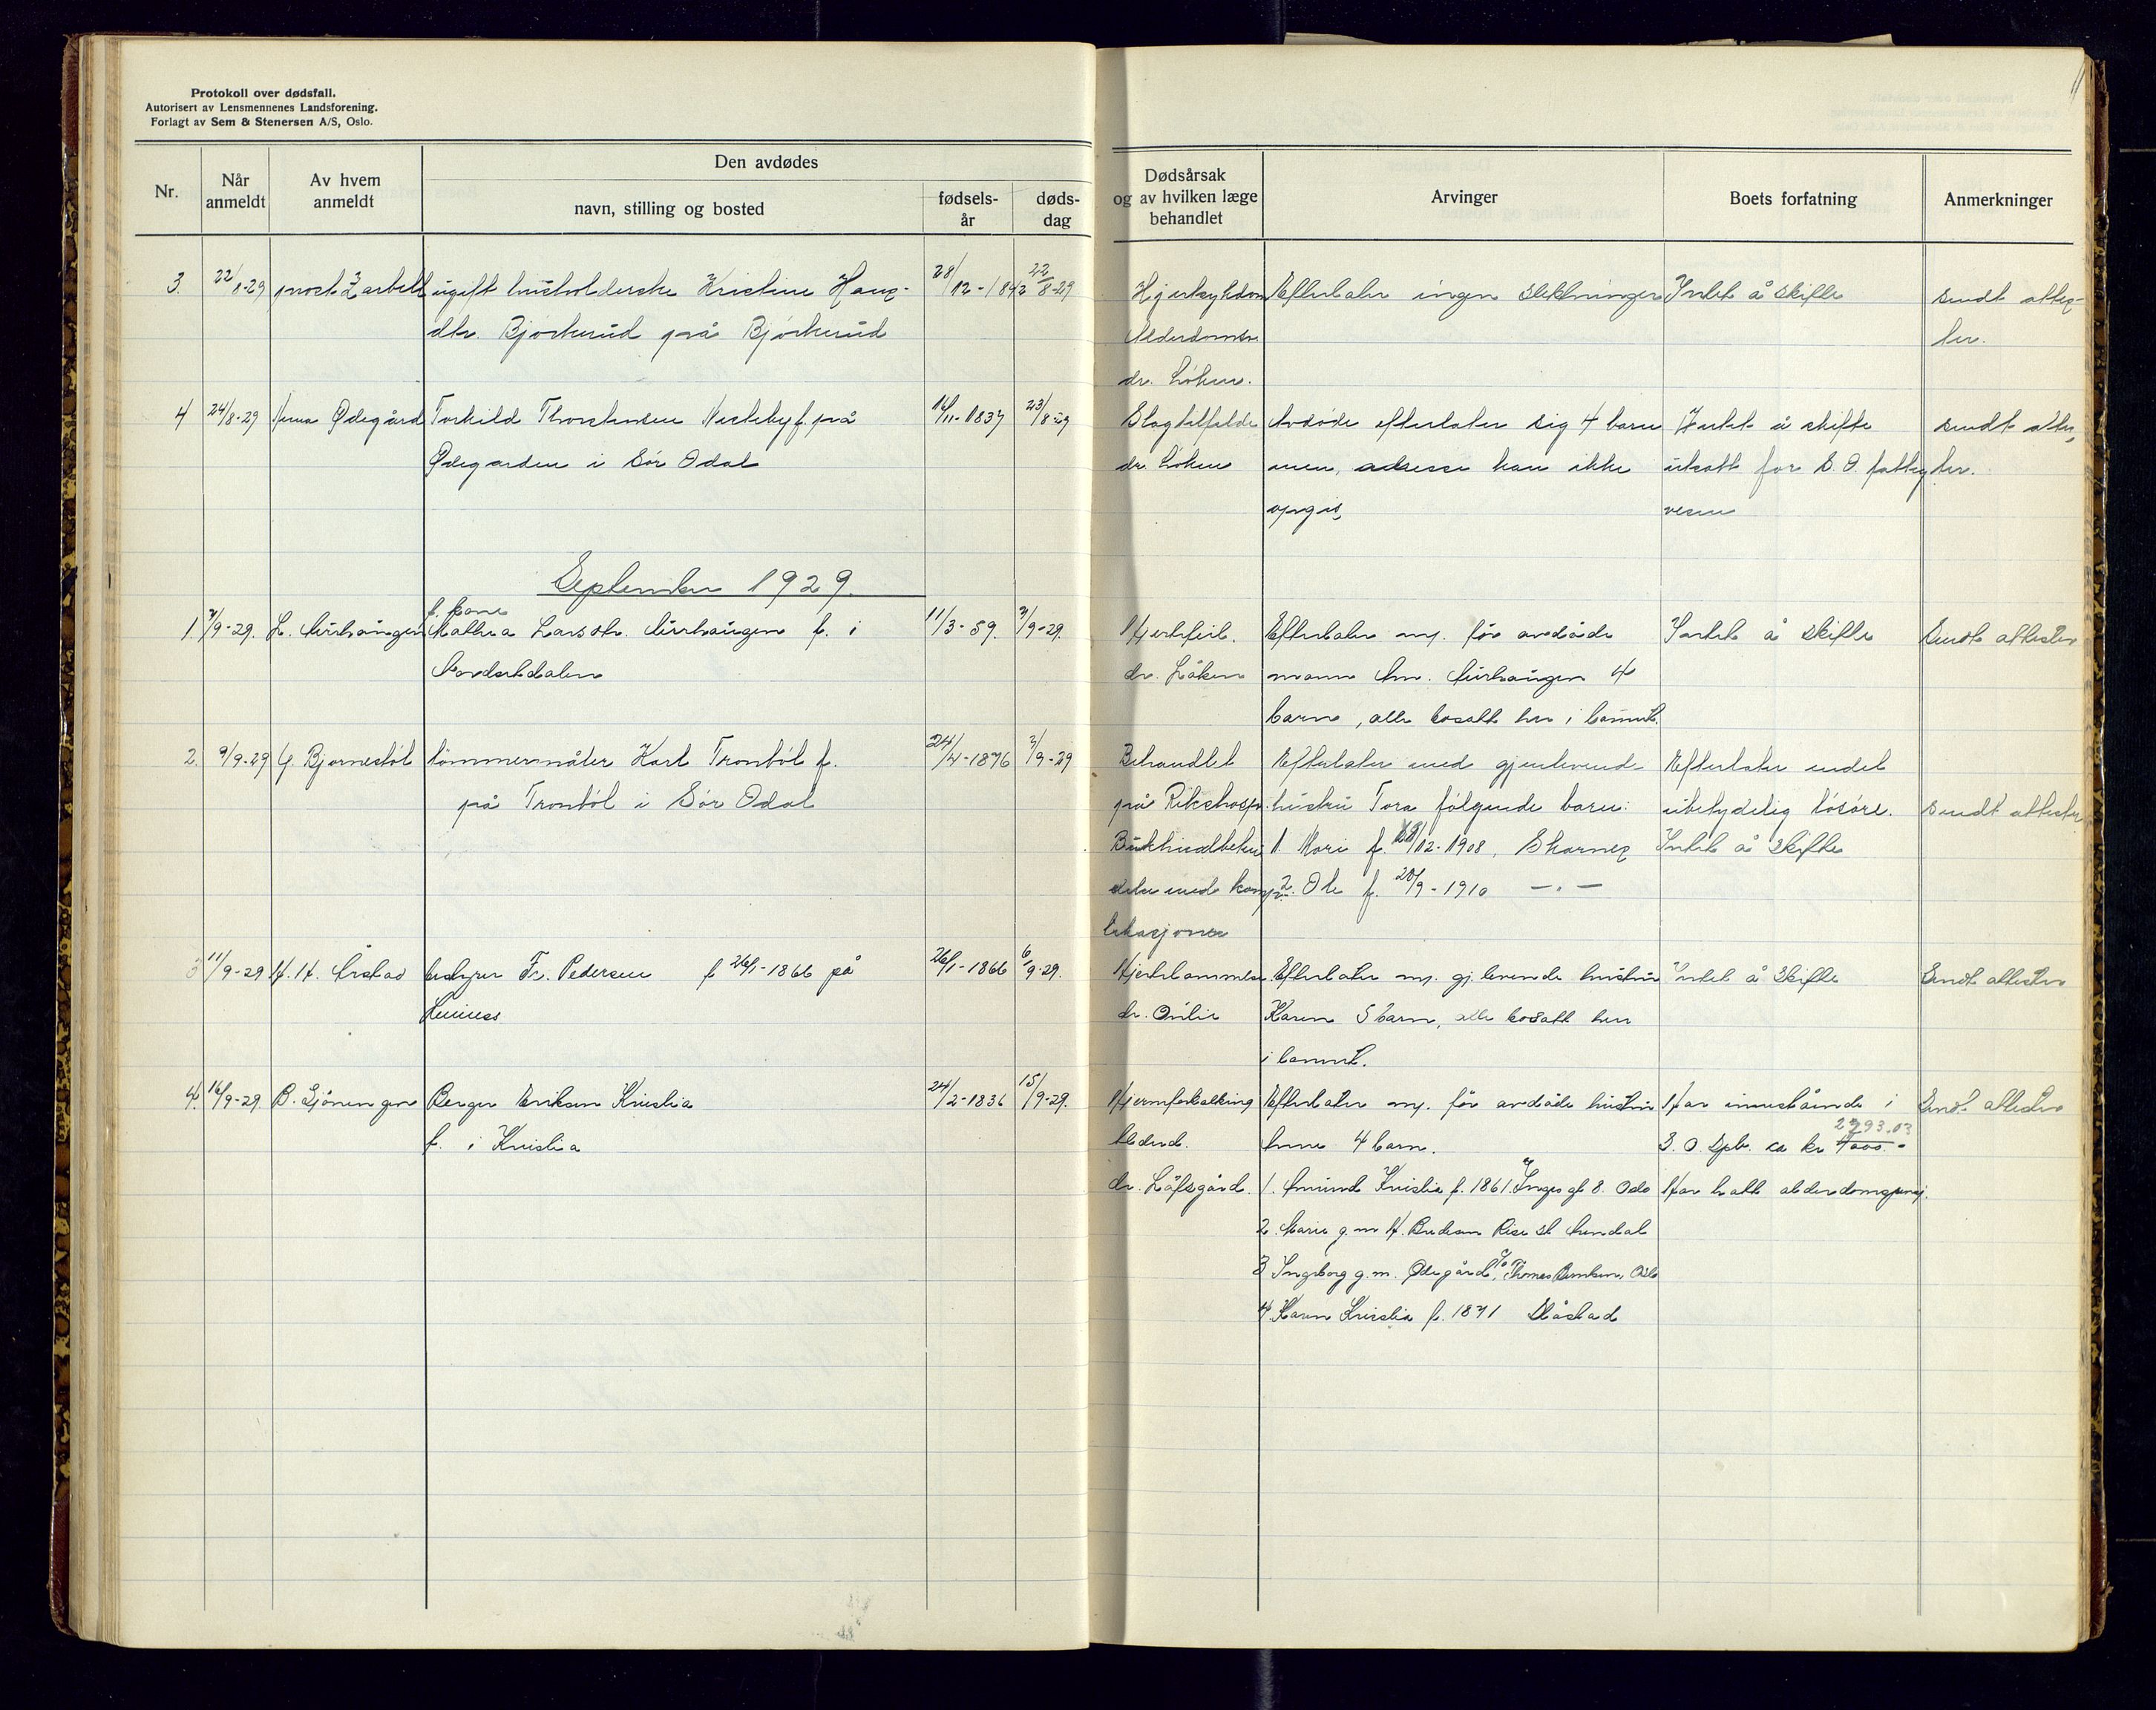 Protokoll over dødsfall.
Autorisert av Lensmennenes Landsforening.
Forlagt av Sem & Stenersen A/S, Oslo.
Nr.
Når anmeldt
Av hvem anmeldt
Den avdødes
navn, stilling og bosted
fødsels-år
døds-dag
Dødsårsak og av hvilken læge behandlet
Arvinger
Boets forfatning
Anmerkninger
3. 22/8-29 prost ugift husholderske Kristine Hans-
dtr. Bjørkerud på Bjørkerud
28/12-1842 22/8-29
Hjertesykdom
Alderdomssv.
dr. Løken.
Efterlater ingen slektninger
Intet å skifte
sendt attes-
ter.
4 24/8-29 Anna Ødegård Torkild Thorstensen Nesteby f. på
Ødegarden i Sør Odal
16/11-1837 23/8-29
Slagtilfelde
dr. Løken
Avdøde efterlater sig 4 barn
men, adresse kan ikke
opgis,
Intet å skifte
utsatt for S. O. fattig
vesen
sendt attes,
ter.
September 1929.
f. kone
1 7/9-29. L. Murhaugen Mathea Larsdtr. Murhaugen f. i
11/3-59. 3/9-29.
Hjertefeil.
dr. Løken
Efterlater m. før avdøde
mann Am. Murhaugen 4
barn, alle bosatt her i bannet.
Intet å skifte
Sendt attester
2. 9/9-29 G. Bjørnestøl tømmermåler Karl Trontbøl f.
på Trontbøl i Sør Odal
24/4-1876 3/9-29
Behandlet
på Rikshosp.
med komp-
likasjoner
Efterlater med gjenlevende
hustru Tora følgende barn:
1. Kari f. /12-1908, Skarnes
2. Ole f. 20/9-1910 —„—
Efterlater endel
ubetydelig løsøre.
Intet å skifte
sendt attester
3 11/9-29 H. H. Årstad bestyrer Fr. Pedersen f 26/1-1866 på
26/1-1866 6/9-29.
Hjertelammelse.
dr. Onlie
Efterlater m. gj. levende hustru
Karen 5 barn, alle bosatt her
i bannet.
Intet å skifte
Sendt attester
4. 16/9-29. B. Sjønengen Berger Eriksen Kruslia
f. i Kruslia
24/2-1836 15/9-29.
Hjerneforkalkning
Alderd.
dr. Löfsgård.
Efterlater m. før avdøde hustru
Anne 4 barn.
1. Amund Kruslia f. 1861. Inges gt 8. Oslo
2. Marie g. m H. Bredesen Rise st Arendal
3 Ingeborg g. m. Ødegård, c/o Thomas Bentsen, Oslo
4. Karen Kruslia f. 1871 Slåstad
Har innestående i
2793.03
S. O. Spb. ca kr 4000.-
Har hatt alderdomspensj.
Sendt attester